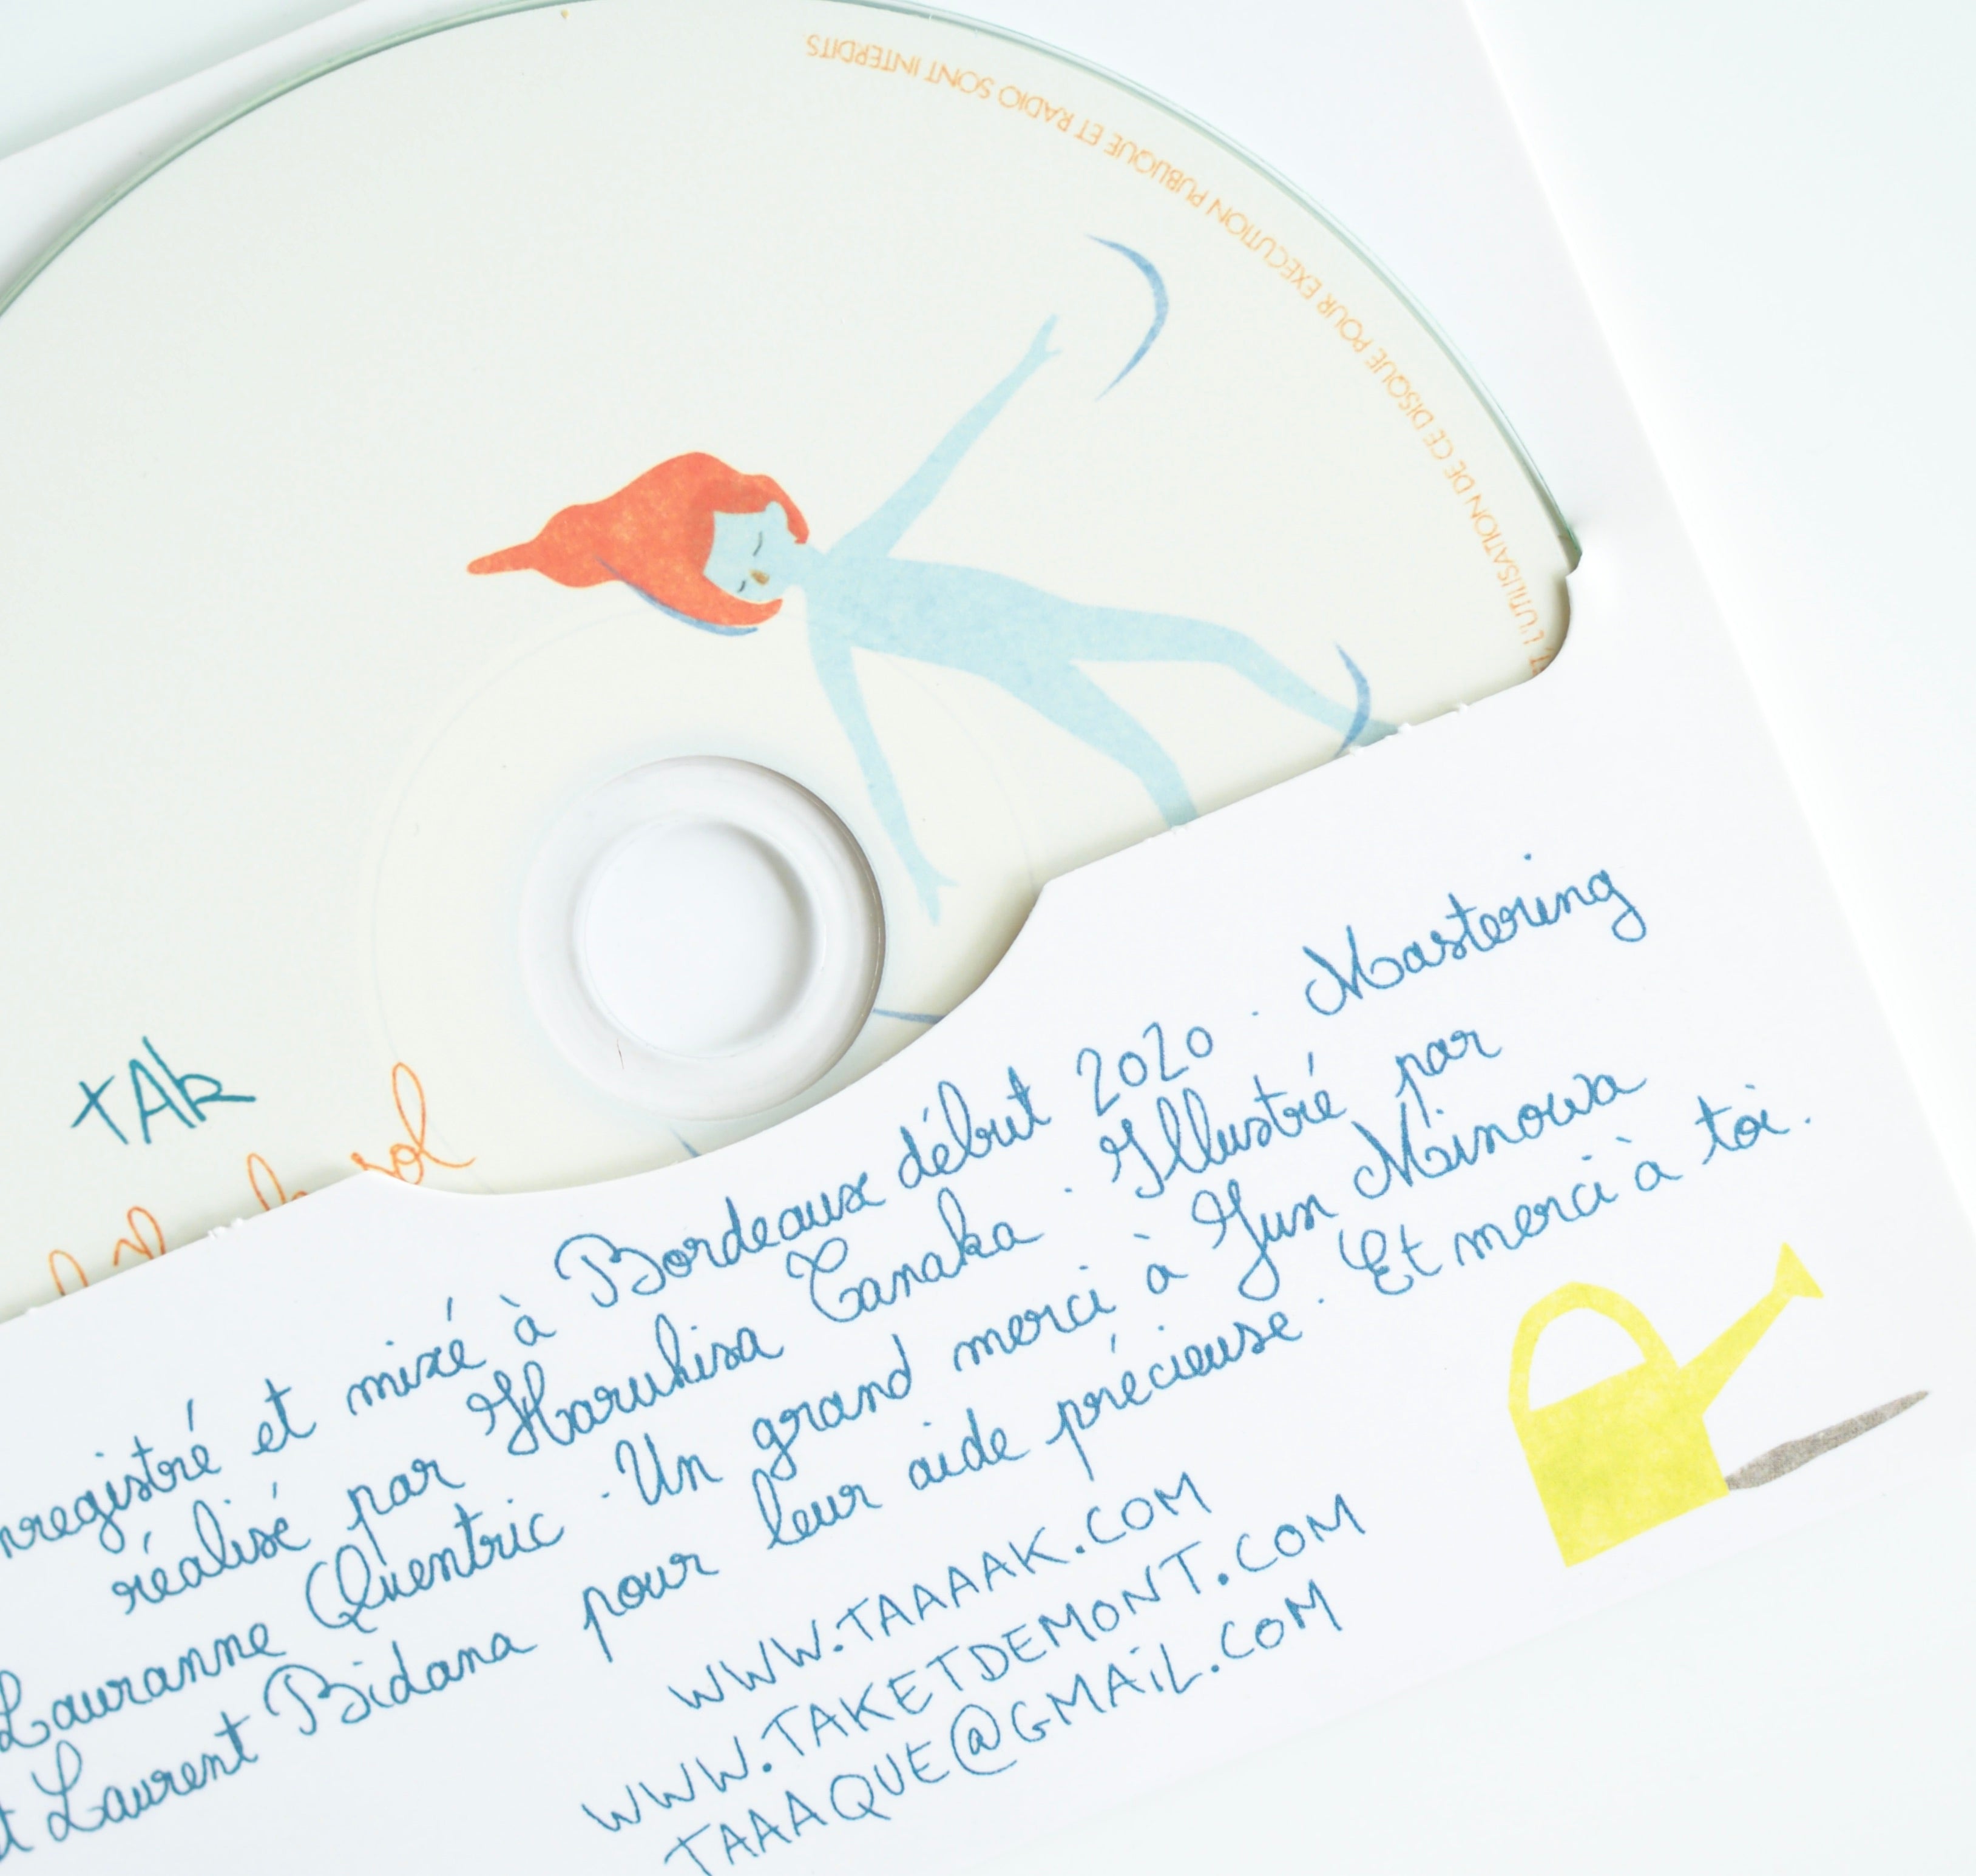 L'UTILISATION DE CE DISQUE POUR EXECUTION PUBLIQUE ET RADIO SONT INTERDITS
TAK
sol
nregistré et mixé à Bordeaux début 2020 · Mastering
réalisé par Haruhisa Tanaka · Illustré par
Lauranne Quentric · Un grand merci à Jun Minowa
et Laurent Bidana pour leur aide précieuse · Et merci à toi.
WWW.TAAAAK.COM
WWW.TAKETDEMONT.COM
TAAAQUE@GMAIL.COM